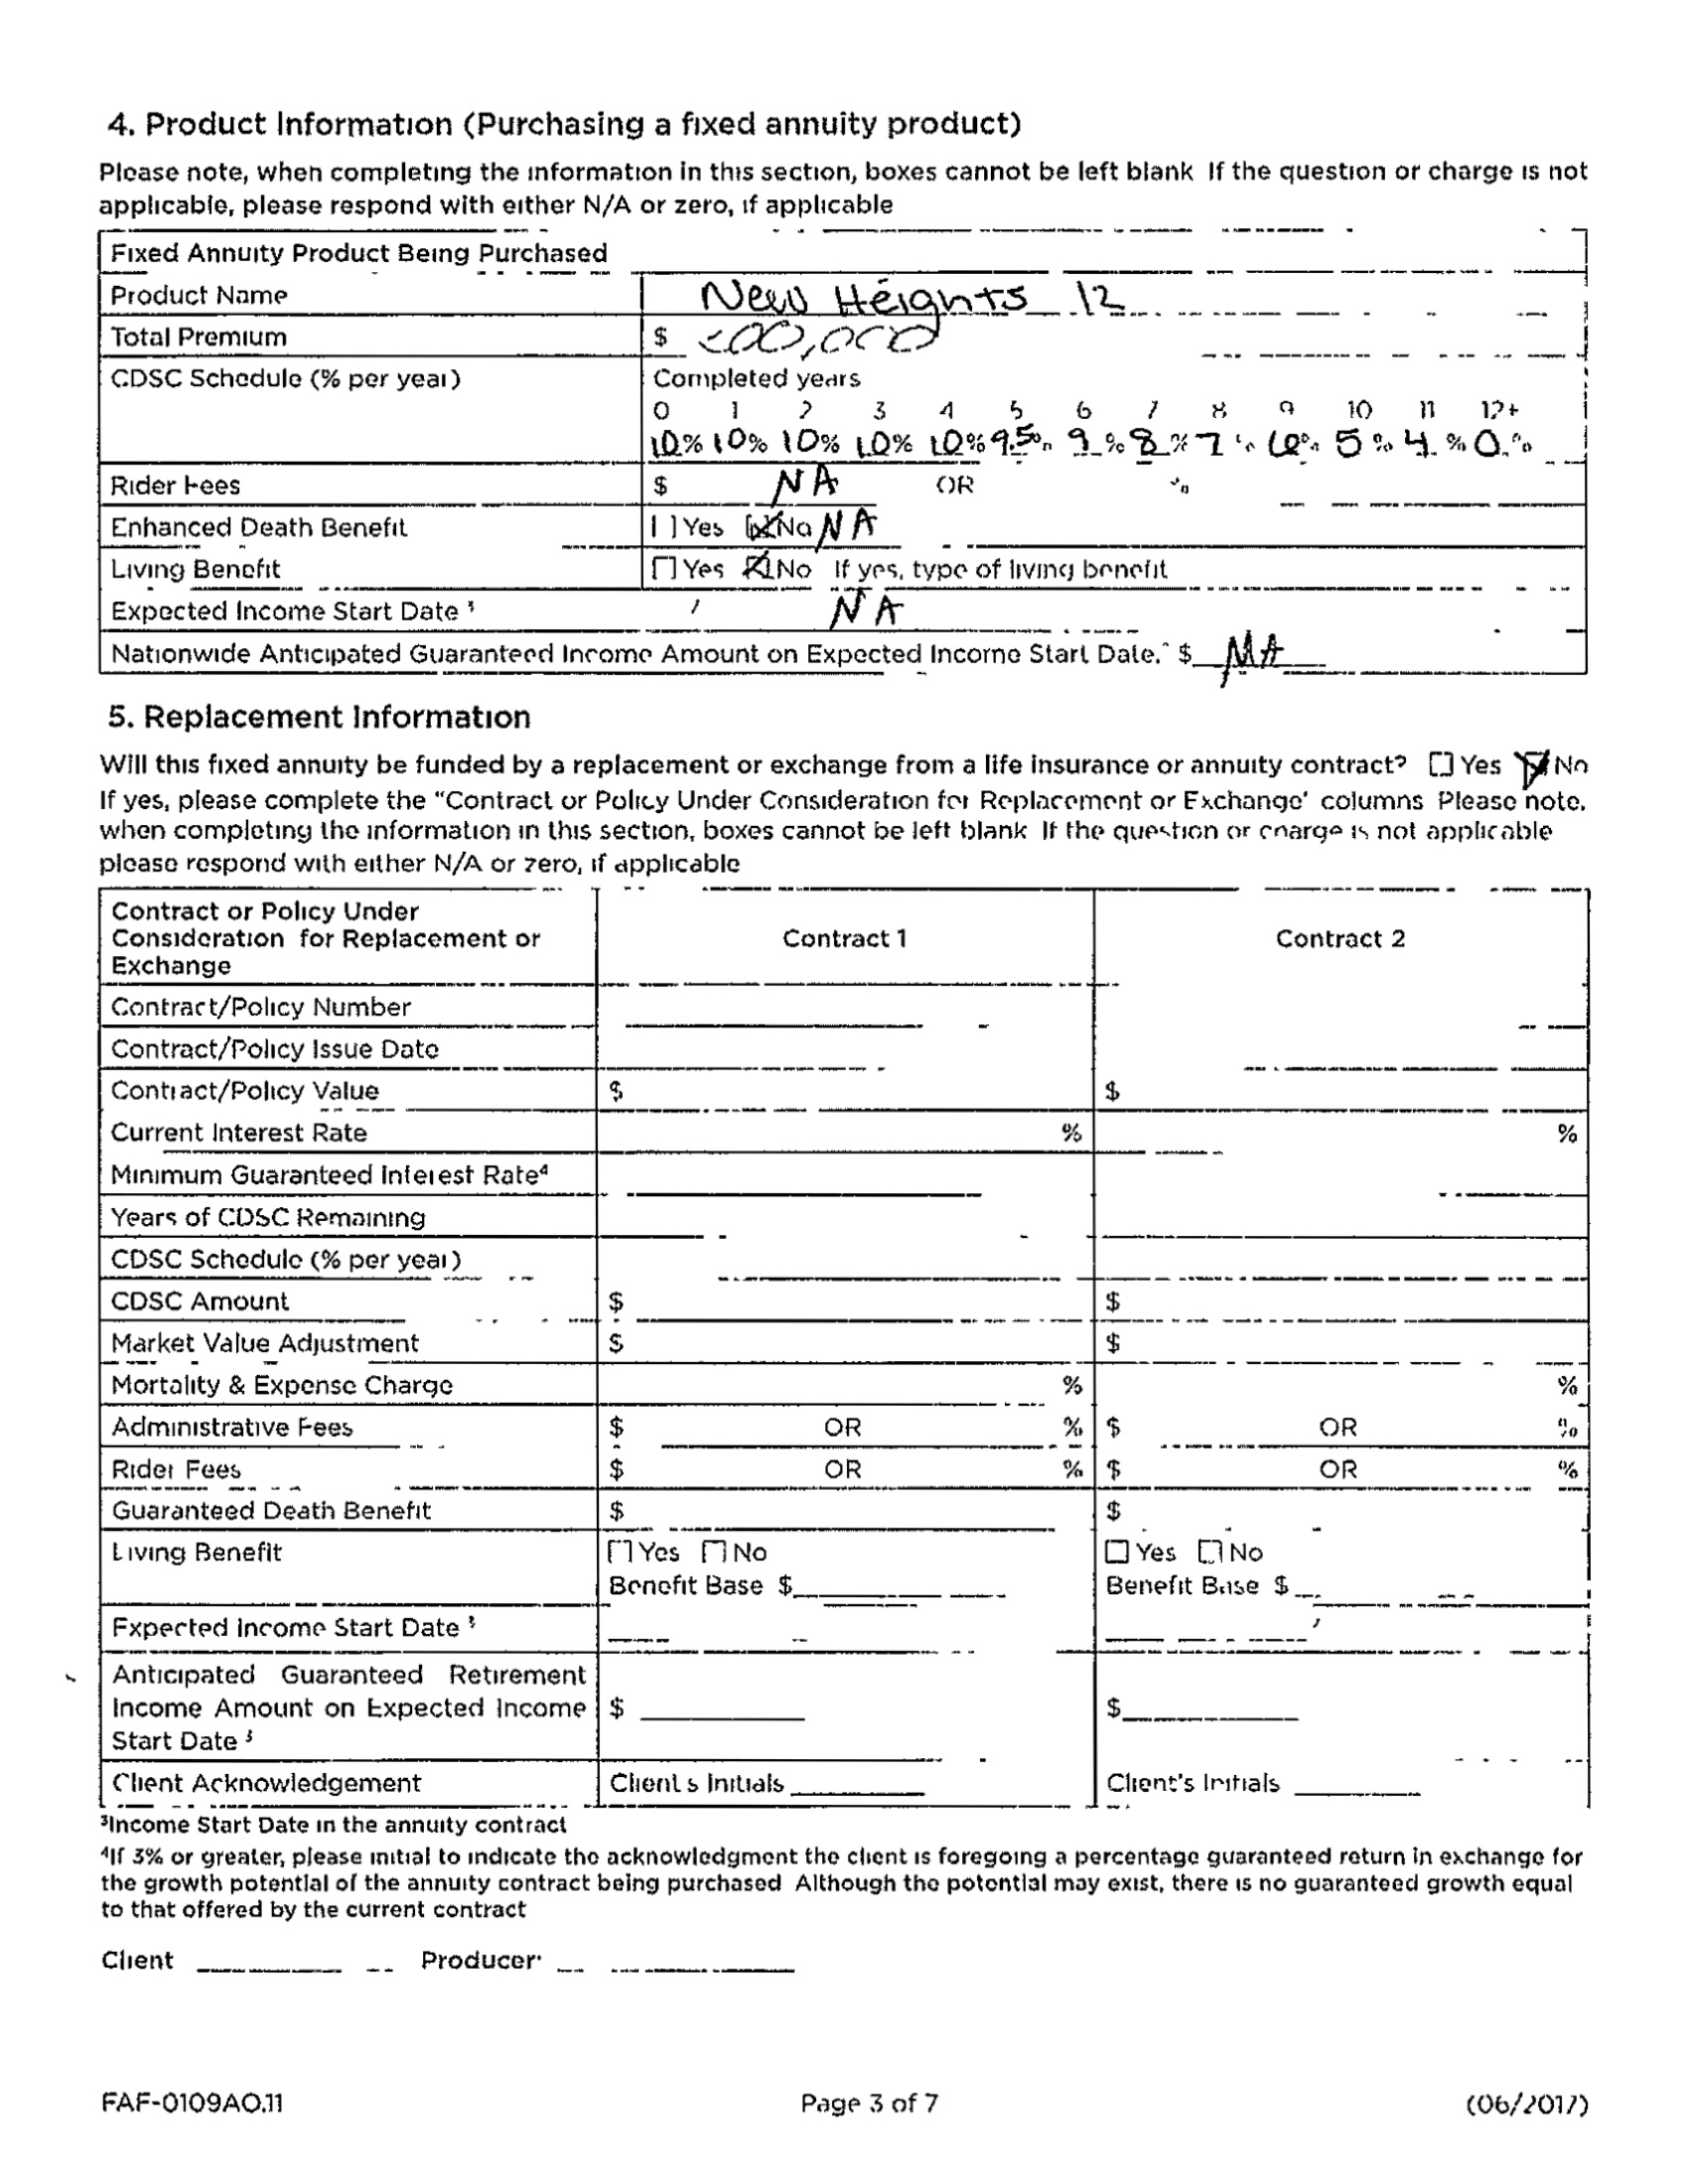 4. Product Information (Purchasing a fixed annuity product)
Please note, when completing the information in this section, boxes cannot be left blank If the question or charge is not
applicable, please respond with either N/A or zero, if applicable
Fixed Annuity Product Being Purchased
Product Name New Heights 12
Total Premium $ 00,000
CDSC Schedule (% per year) Completed years
0 1 2 3 4 5 6 7 8 9 10 11 12+
10% 10% 10% 10% 10% 9.5% 9% 8% 7% 6% 5% 4% 0%
Rider Fees $ NA OR %
Enhanced Death Benefit Yes No NA
Living Benefit Yes No If yes, type of living benefit
Expected Income Start Date 3 / NA
Nationwide Anticipated Guaranteed Income Amount on Expected Income Start Date. $ NA
5. Replacement Information
Will this fixed annuity be funded by a replacement or exchange from a life insurance or annuity contract? Yes No
If yes, please complete the "Contract or Policy Under Consideration for Replacement or Exchange' columns Please note,
when completing the information in this section, boxes cannot be left blank If the question or charge is not applicable
please respond with either N/A or zero, if applicable
Contract or Policy Under
Consideration for Replacement or
Exchange
Contract 1
Contract 2
Contract/Policy Number
Contract/Policy Issue Date
Contract/Policy Value $ $
Current Interest Rate % %
Minimum Guaranteed Interest Rate4
Years of CDSC Remaining
CDSC Schedule (% per year)
CDSC Amount $ $
Market Value Adjustment $ $
Mortality & Expense Charge % %
Administrative Fees $ OR % $ OR %
Rider Fees $ OR % $ OR %
Guaranteed Death Benefit $ $
Living Benefit Yes No Yes No
Benefit Base $ Benefit Base $
Expected Income Start Date 3
Anticipated Guaranteed Retirement
Income Amount on Expected Income $ $
Start Date 3
Client Acknowledgement Client s Initials Client's Initials
3Income Start Date in the annuity contract
4If 3% or greater, please initial to indicate the acknowledgment the client is foregoing a percentage guaranteed return in exchange for
the growth potential of the annuity contract being purchased Although the potential may exist, there is no guaranteed growth equal
to that offered by the current contract
Client Producer
FAF-0109AO.11 Page 3 of 7 (06/2017)